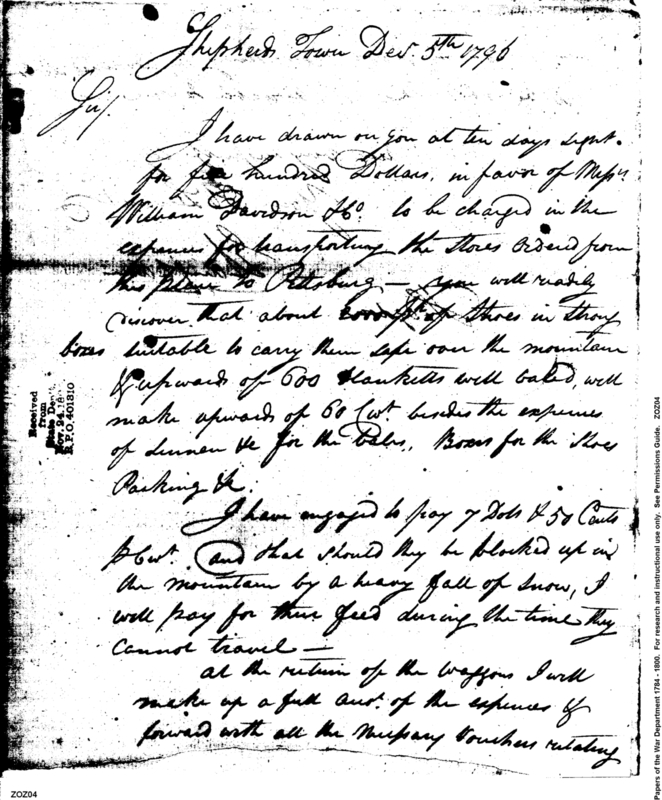 Shepherds Town Decr. 5th 1796
Sir/.
I have drawn on you at ten days sight.
for five hundred Dollars, in favor of Messrs
William Davidson & Co. to be charged in the
expences for transporting the stores ordered from
this place to Pittsburg — you will readily
discover that about 2000 prs of Shoes in strong
boxes suitable to carry them safe over the mountain
& upwards of 600 blanketts well baled, will
make upwards of 60 Cwt. besides the expences
of Linnen &c for the bales, Boxes for the Shoes
Packing &c.
I have engaged to pay 7 Dols & 50 Cents
p Cwt. and that should they be blocked up in
the mountain by a heavy fall of snow, I
will pay for their feed during the time they
cannot travel —
at the return of the waggons I will
make up a full Acct. of the expences &
forward with all the necessary Vouchers relating
Received
from
State Dept.
Nov. 24, 18
R.P.O. 401310
ZOZ04
Papers of the War Department 1784 - 1800. For research and instructional use only. See Permissions Guide. ZOZ04